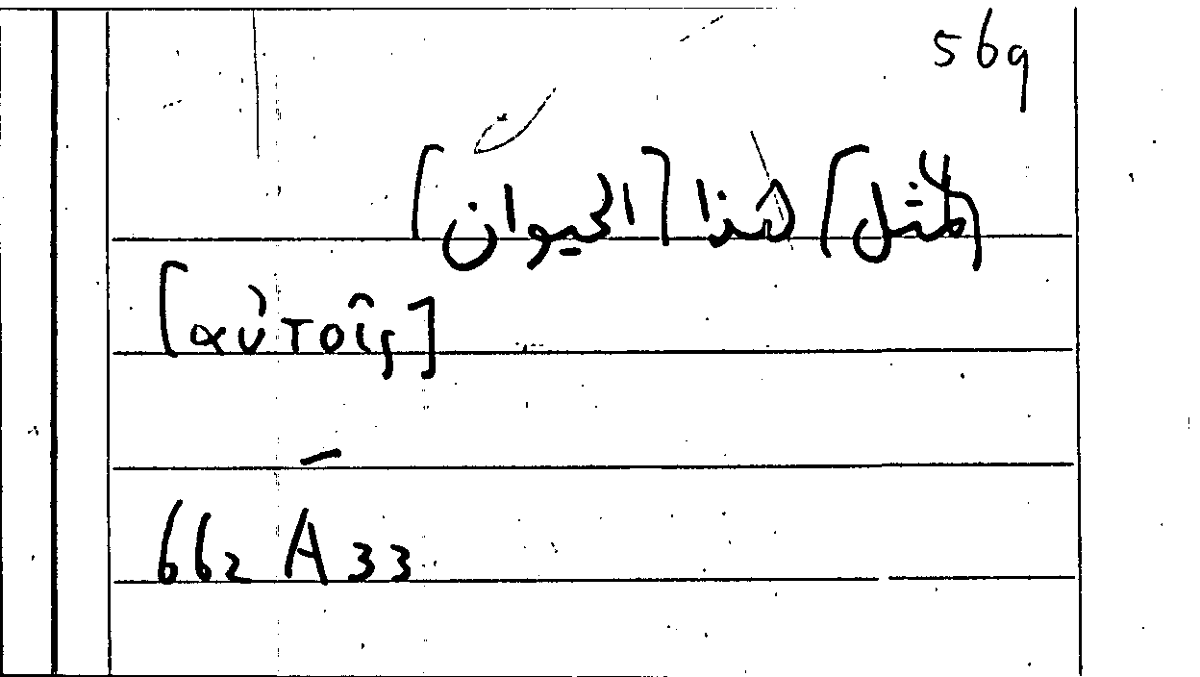 569
(لمثل) هذا [الحيوان]
[αὐτοῖς]
662 A 33